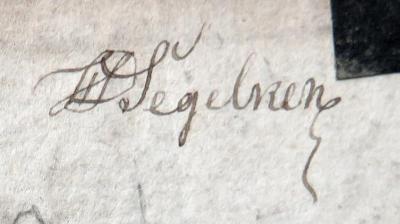 HD Segelken